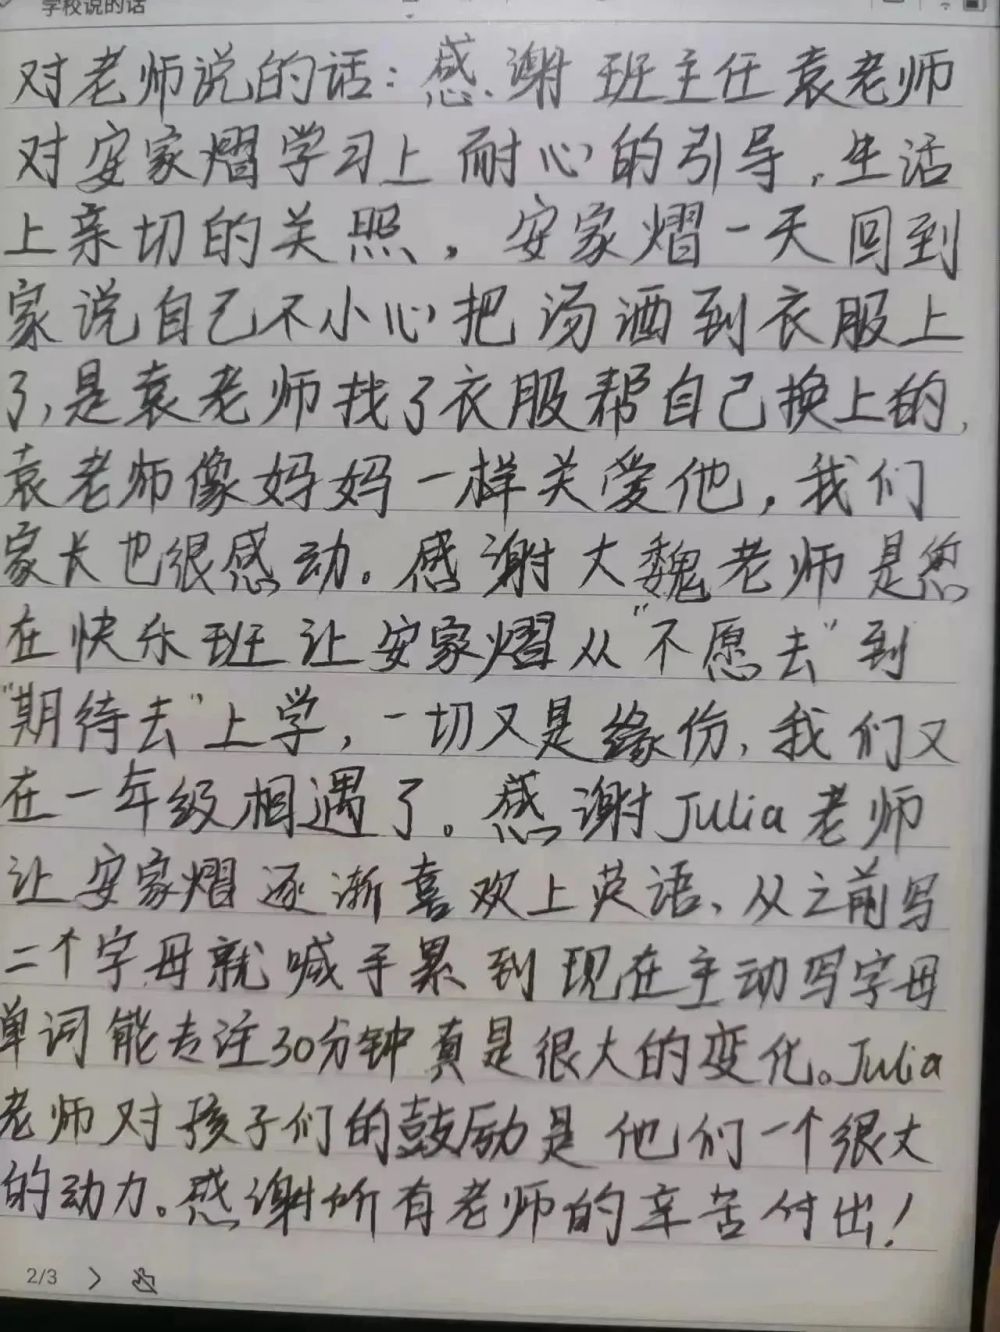 学校说的话
对老师说的话：感谢班主任袁老师
对安家熠学习上耐心的引导，生活
上亲切的关照，安家熠一天回到
家说自己不小心把汤洒到衣服上
了，是袁老师找了衣服帮自己换上的，
袁老师像妈妈一样关爱他，我们
家长也很感动。感谢大魏老师是您
在快乐班让安家熠从"不愿去"到
"期待去"上学，一切又是缘份，我们又
在一年级相遇了。感谢Julia老师
让安家熠逐渐喜欢上英语、从之前写
二个字母就喊手累到现在主动写字母
单词能专注30分钟真是很大的变化。Julia
老师对孩子们的鼓励是他们一个很大
的动力。感谢所有老师的辛苦付出！
2/3 >